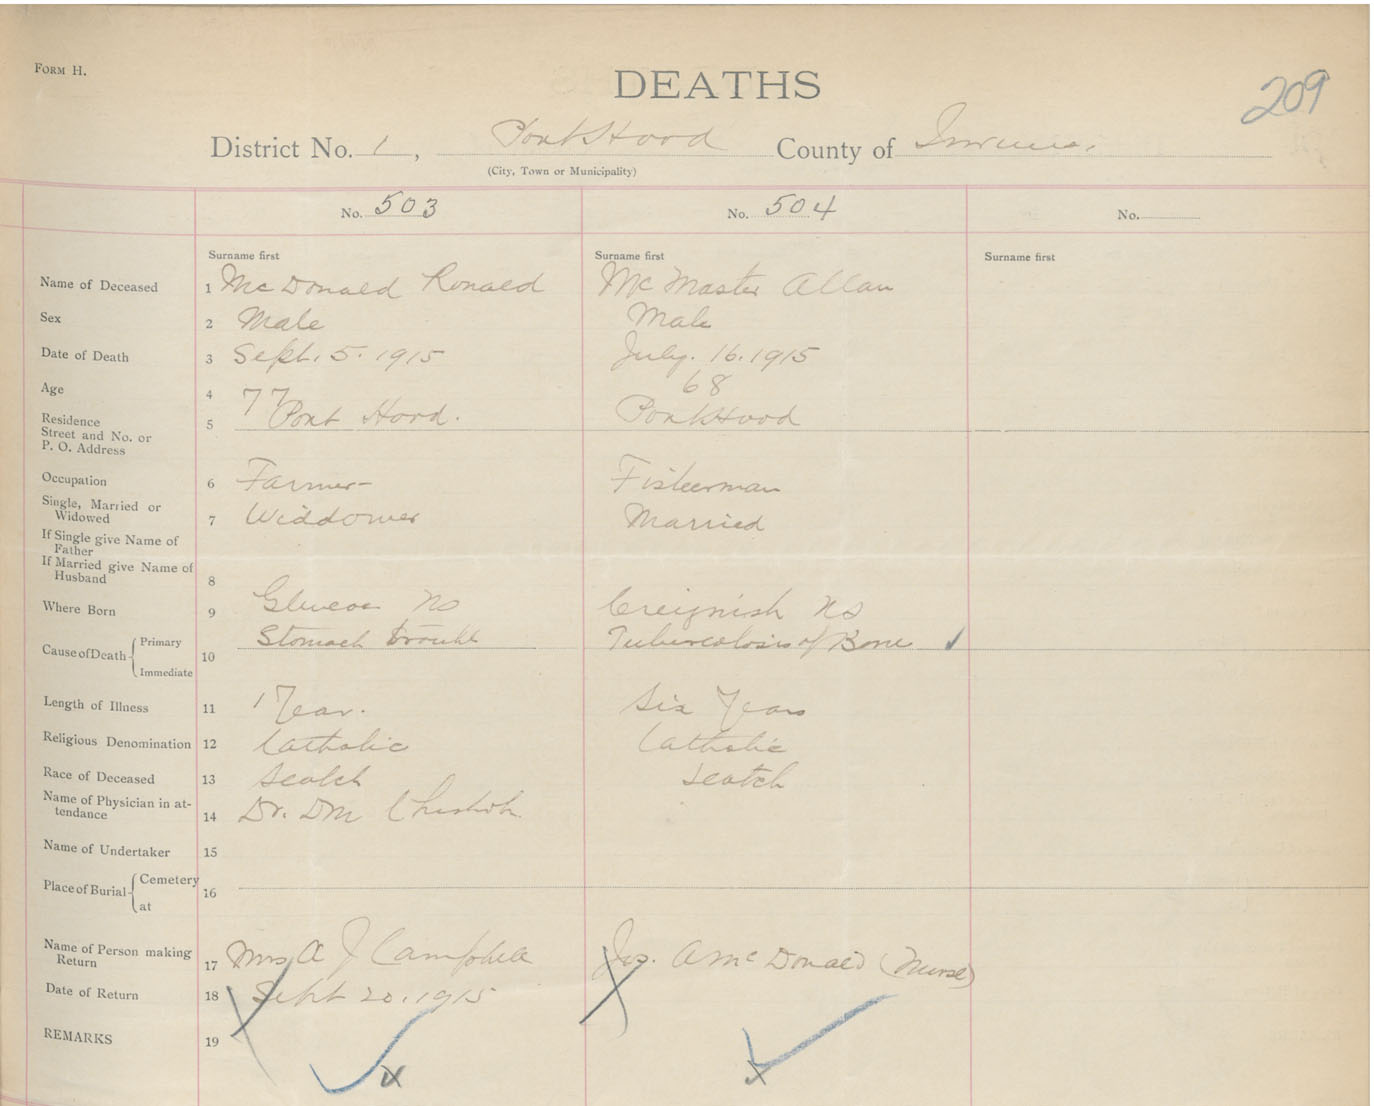 FORM H.
DEATHS
209
District No. 1, Port Hood County of
(City, Town or Municipality)
No. 503 No. 504 No.
Surname first Surname first Surname first
Name of Deceased 1 McDonald Ronald McMaster Allan
Sex 2 Male Male
Date of Death 3 Sept. 5. 1915 July. 16. 1915
Age 4 77 68
Residence Street and No. or P. O. Address 5 Port Hood. Port Hood
Occupation 6 Farmer Fisherman
Single, Married or Widowed 7 Widdower Married
If Single give Name of Father
If Married give Name of Husband 8
Where Born 9 Glencoe NS Creignish NS
Cause of Death Primary Immediate 10 Stomach trouble Tuberculosis of Bone
Length of Illness 11 1 Year. Six Years
Religious Denomination 12 Catholic Catholic
Race of Deceased 13 Scotch Scotch
Name of Physician in attendance 14 Dr. DM Chisholm
Name of Undertaker 15
Place of Burial Cemetery at 16
Name of Person making Return 17 Mrs A J Campbell Jos. A McDonald (Nurse)
Date of Return 18 Sept 20. 1915
REMARKS 19
x x